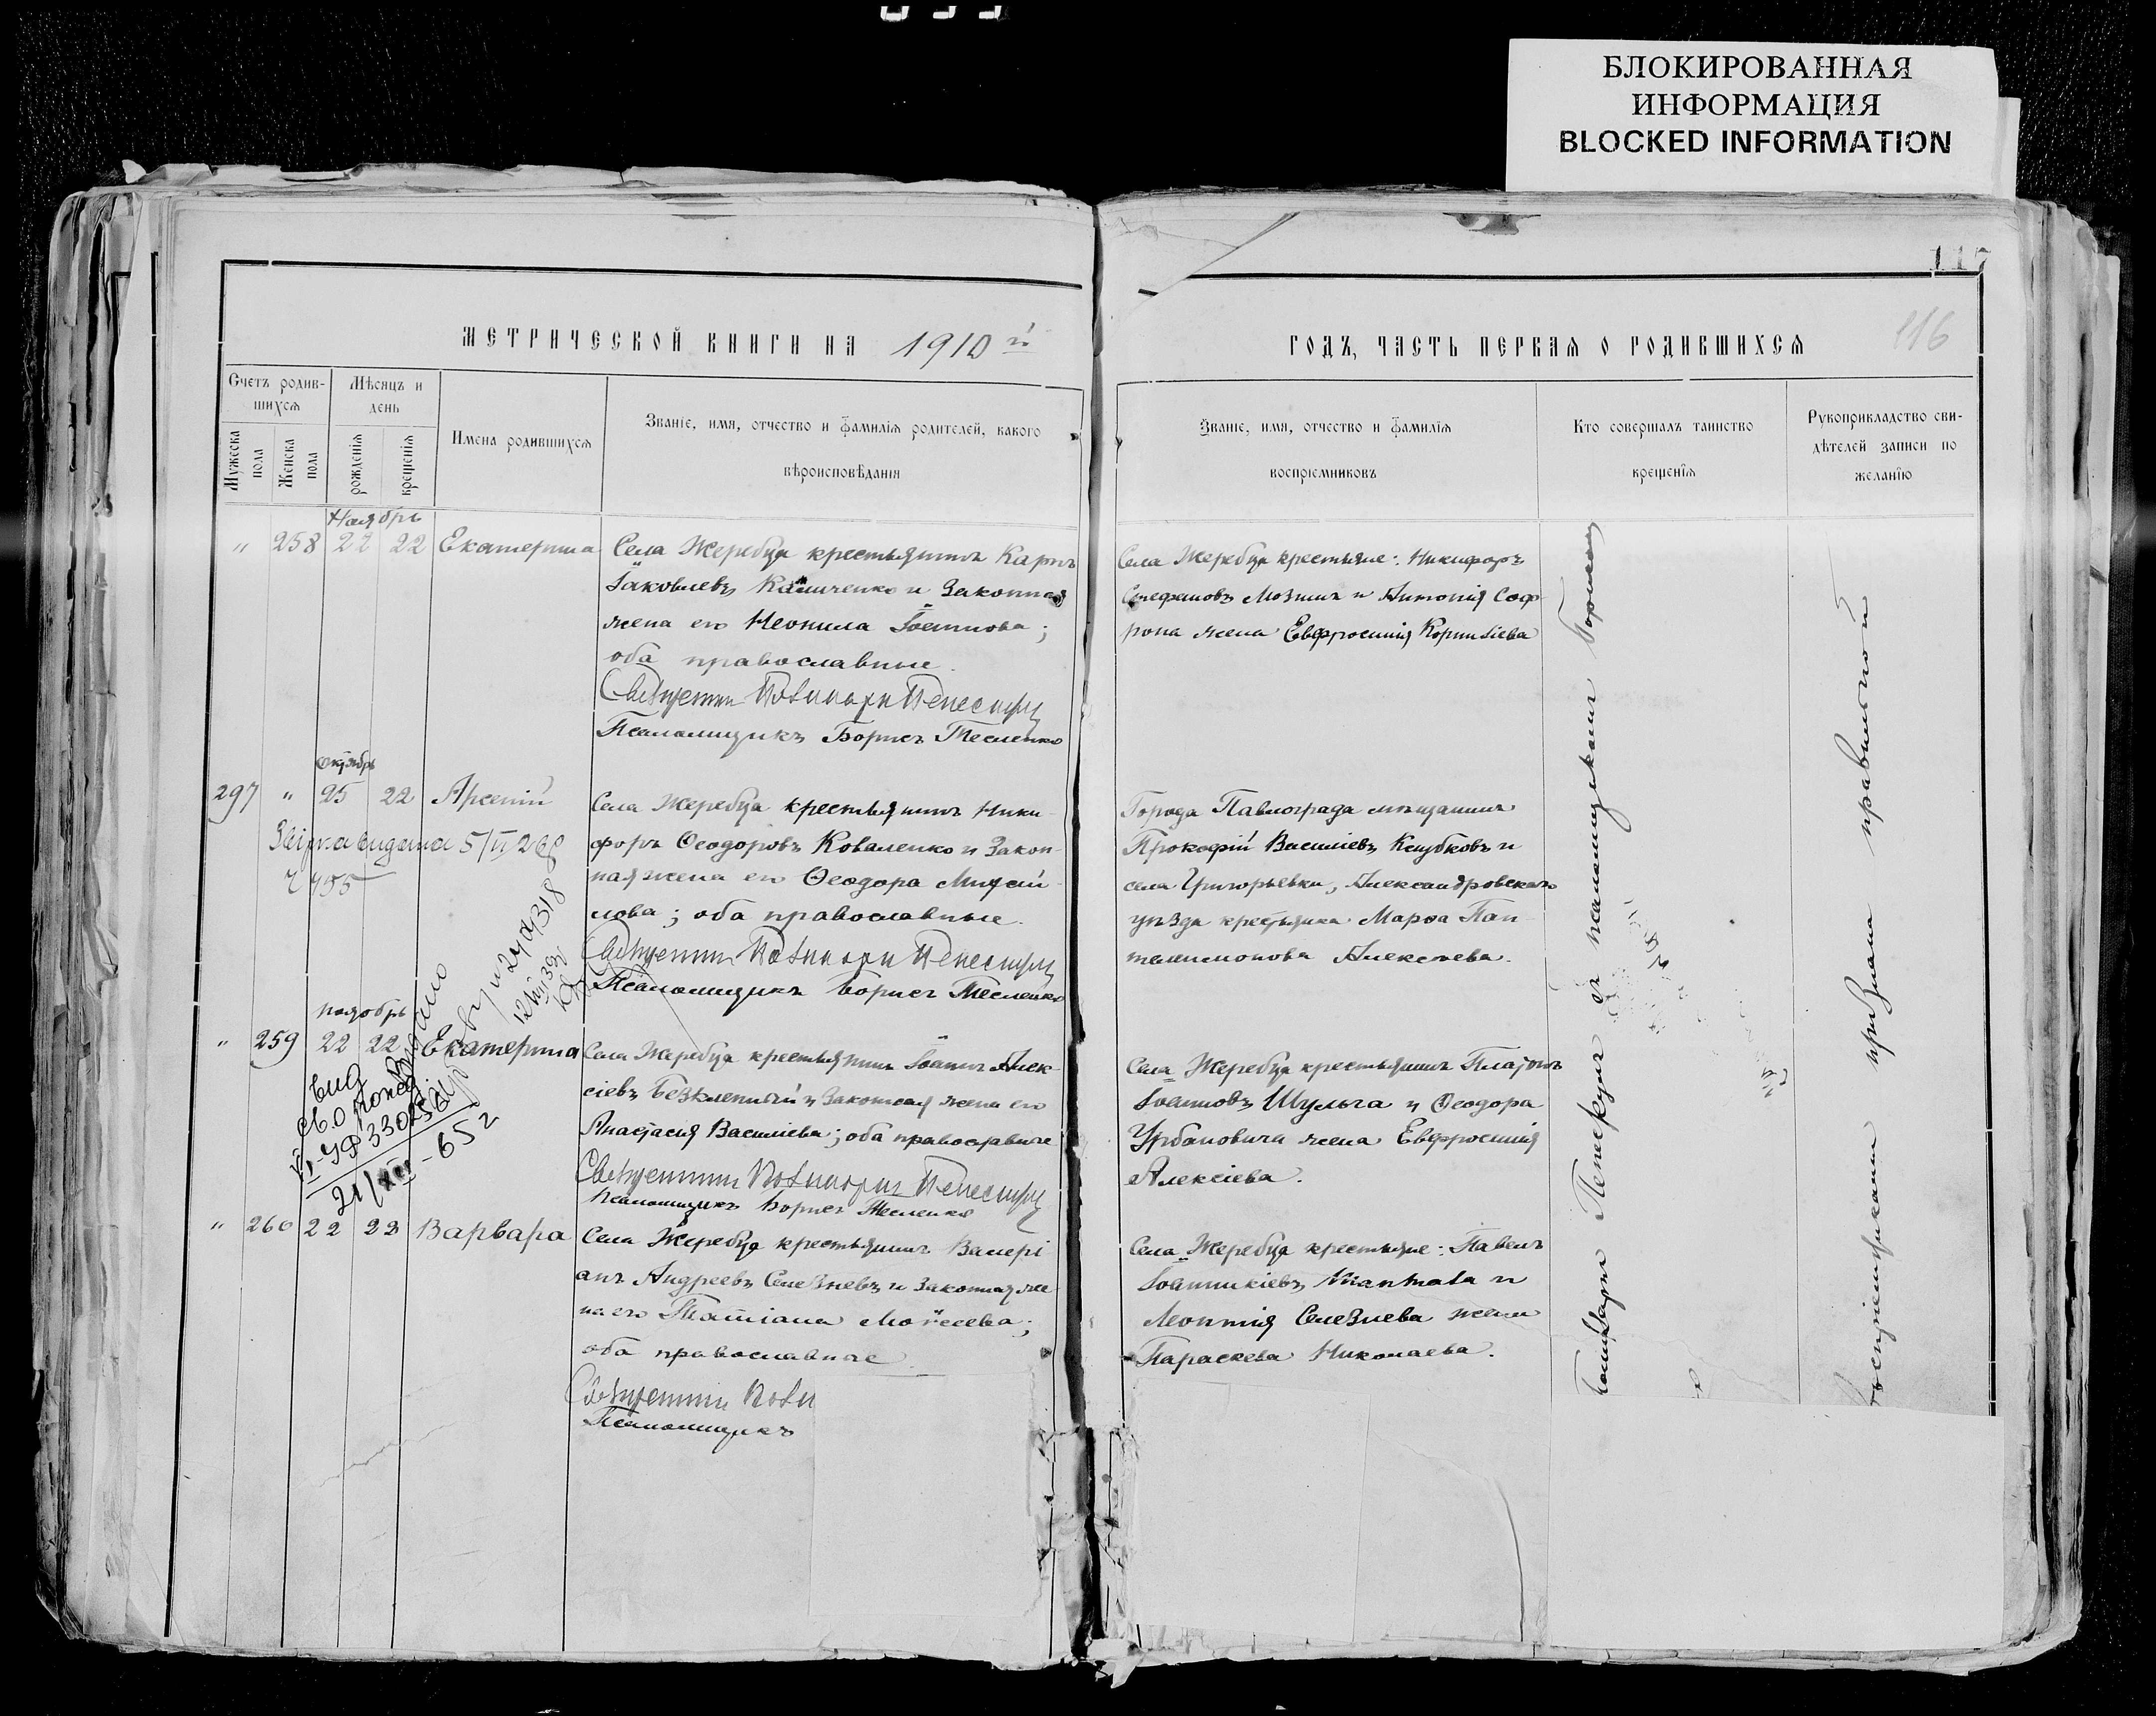 БЛОКИРОВАННАЯ
ИНФОРМАЦИЯ
BLOCKED INFORMATION
117
116
МЕТРИЧЕСКОЙ КНИГИ НА 1910 й
ГОДЪ, ЧАСТЬ ПЕРВАЯ О РОДИВШИХСЯ
Счетъ родив-
шихся
Мѣсяцъ и
день
Мужеска
пола
Женска
пола
рожденія
крещенія
Имена родившихся
Званіе, имя, отчество и фамилія родителей, какого
вѣроисповѣданія
Званіе, имя, отчество и фамилія
воспріемниковъ
Кто совершалъ таинство
крещенія
Рукоприкладство сви-
дѣтелей записи по
желанію
Ноябрь
" 258 22 22 Екатерина
Села Жеребца крестьянинъ Карпъ
Іаковлевъ и Законная
жена его Неонила Іоаннова;
оба православные.
Священник
Псаломщикъ Борисъ Тесленко
Села Жеребца крестьяне: Никифоръ
Стефановъ и Антонія Соф
рона жена Евфросинія Корниліева
Октябрь
297 " 25 22 Арсеній
Села Жеребца крестьянинъ Ники
форъ Ѳеодоровъ Коваленко и Закон-
ная жена его Ѳеодора Михаи
лова; оба православные.
Священник
Псаломщикъ Борисъ Тесленко
Города Павлограда мѣщанинъ
Прокофій Василіевъ и
села Григорьевки, Александровскаго
уѣзда крестьянка Марѳа Пан
телеимонова Алексѣева.
ноябрь
" 259 22 22 Екатерина
Села Жеребца крестьянинъ Іоаннъ Алек
сіевъ и Законная жена его
Анастасія Василіева; оба православные
Священник
Псаломщикъ Борисъ Тесленко
Села Жеребца крестьянинъ Платонъ
Іоанновъ Шульга и Ѳеодора
Урбановича жена Евфросинія
Алексіева.
21/XII-652
" 260 22 22 Варвара
Села Жеребца крестьянинъ Валері
анъ Андреевъ Селезневъ и Законная же
на его Татіана Моѵсеева;
оба православные
Священник
Псаломщикъ
Села Жеребца крестьяне: Павелъ
Іоанникіевъ и
Леонтія Селезнева жена
Параскева Николаева.